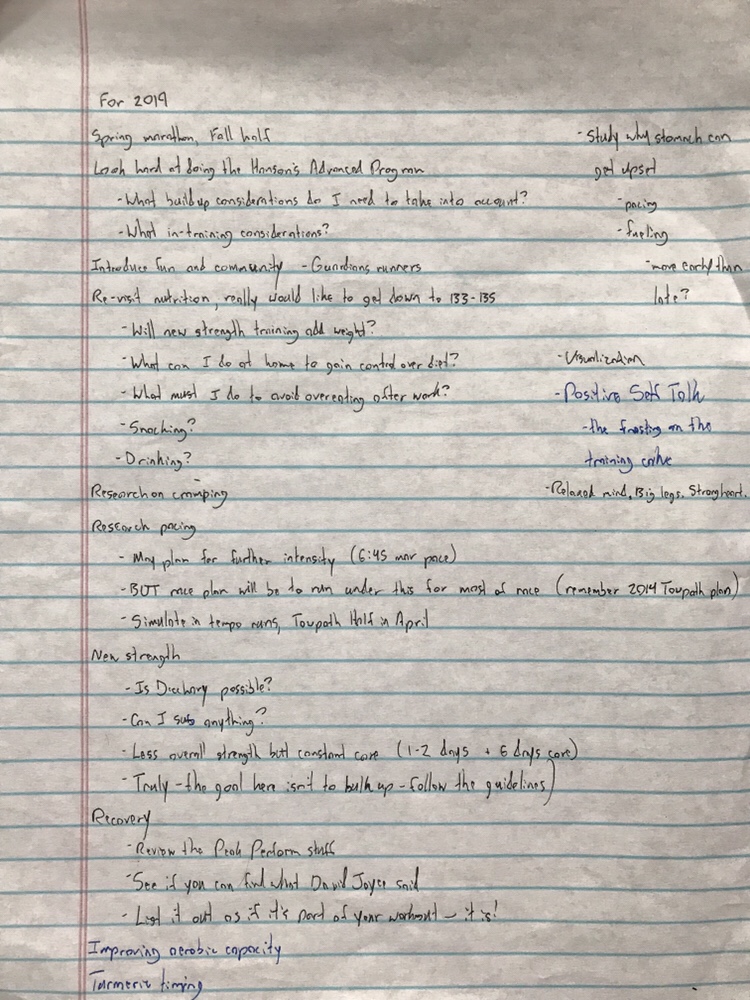 For 2019
Spring marathon, Fall half
Look hard at doing the Hanson's Advanced Program
-What buildup considerations do I need to take into account?
-What in-training considerations?
Introduce fun and community - Guardians runners
Re-visit nutrition, really would like to get down to 133-135
-Will new strength training add weight?
-What can I do at home to gain control over diet?
-What must I do to avoid overeating after work?
-Snacking?
-Drinking?
Research on cramping
Research pacing
- May plan for further intensity (6:45 mar pace)
-BUT race plan will be to run under this for most of race (remember 2014 Towpath plan)
-Simulate in tempo runs, Towpath Half in April
New strength
-Is Dicharry possible?
-Can I sub anything?
-Less overall strength but constant core (1-2 days + 6 days core)
-Truly - the goal here isn't to bulk up - follow the guidelines)
Recovery
-Review the Peak Perform stuff
-See if you can find what David Joyce said
-List it out as if it's part of your workout - it is!
Improving aerobic capacity
Turmeric timing
-Study why stomach can
get upset
-pacing
-fueling
-more early than
late?
-Visualization
-Positive Self Talk
-the frosting on the
training cake
-Relaxed mind. Big legs. Strong heart.